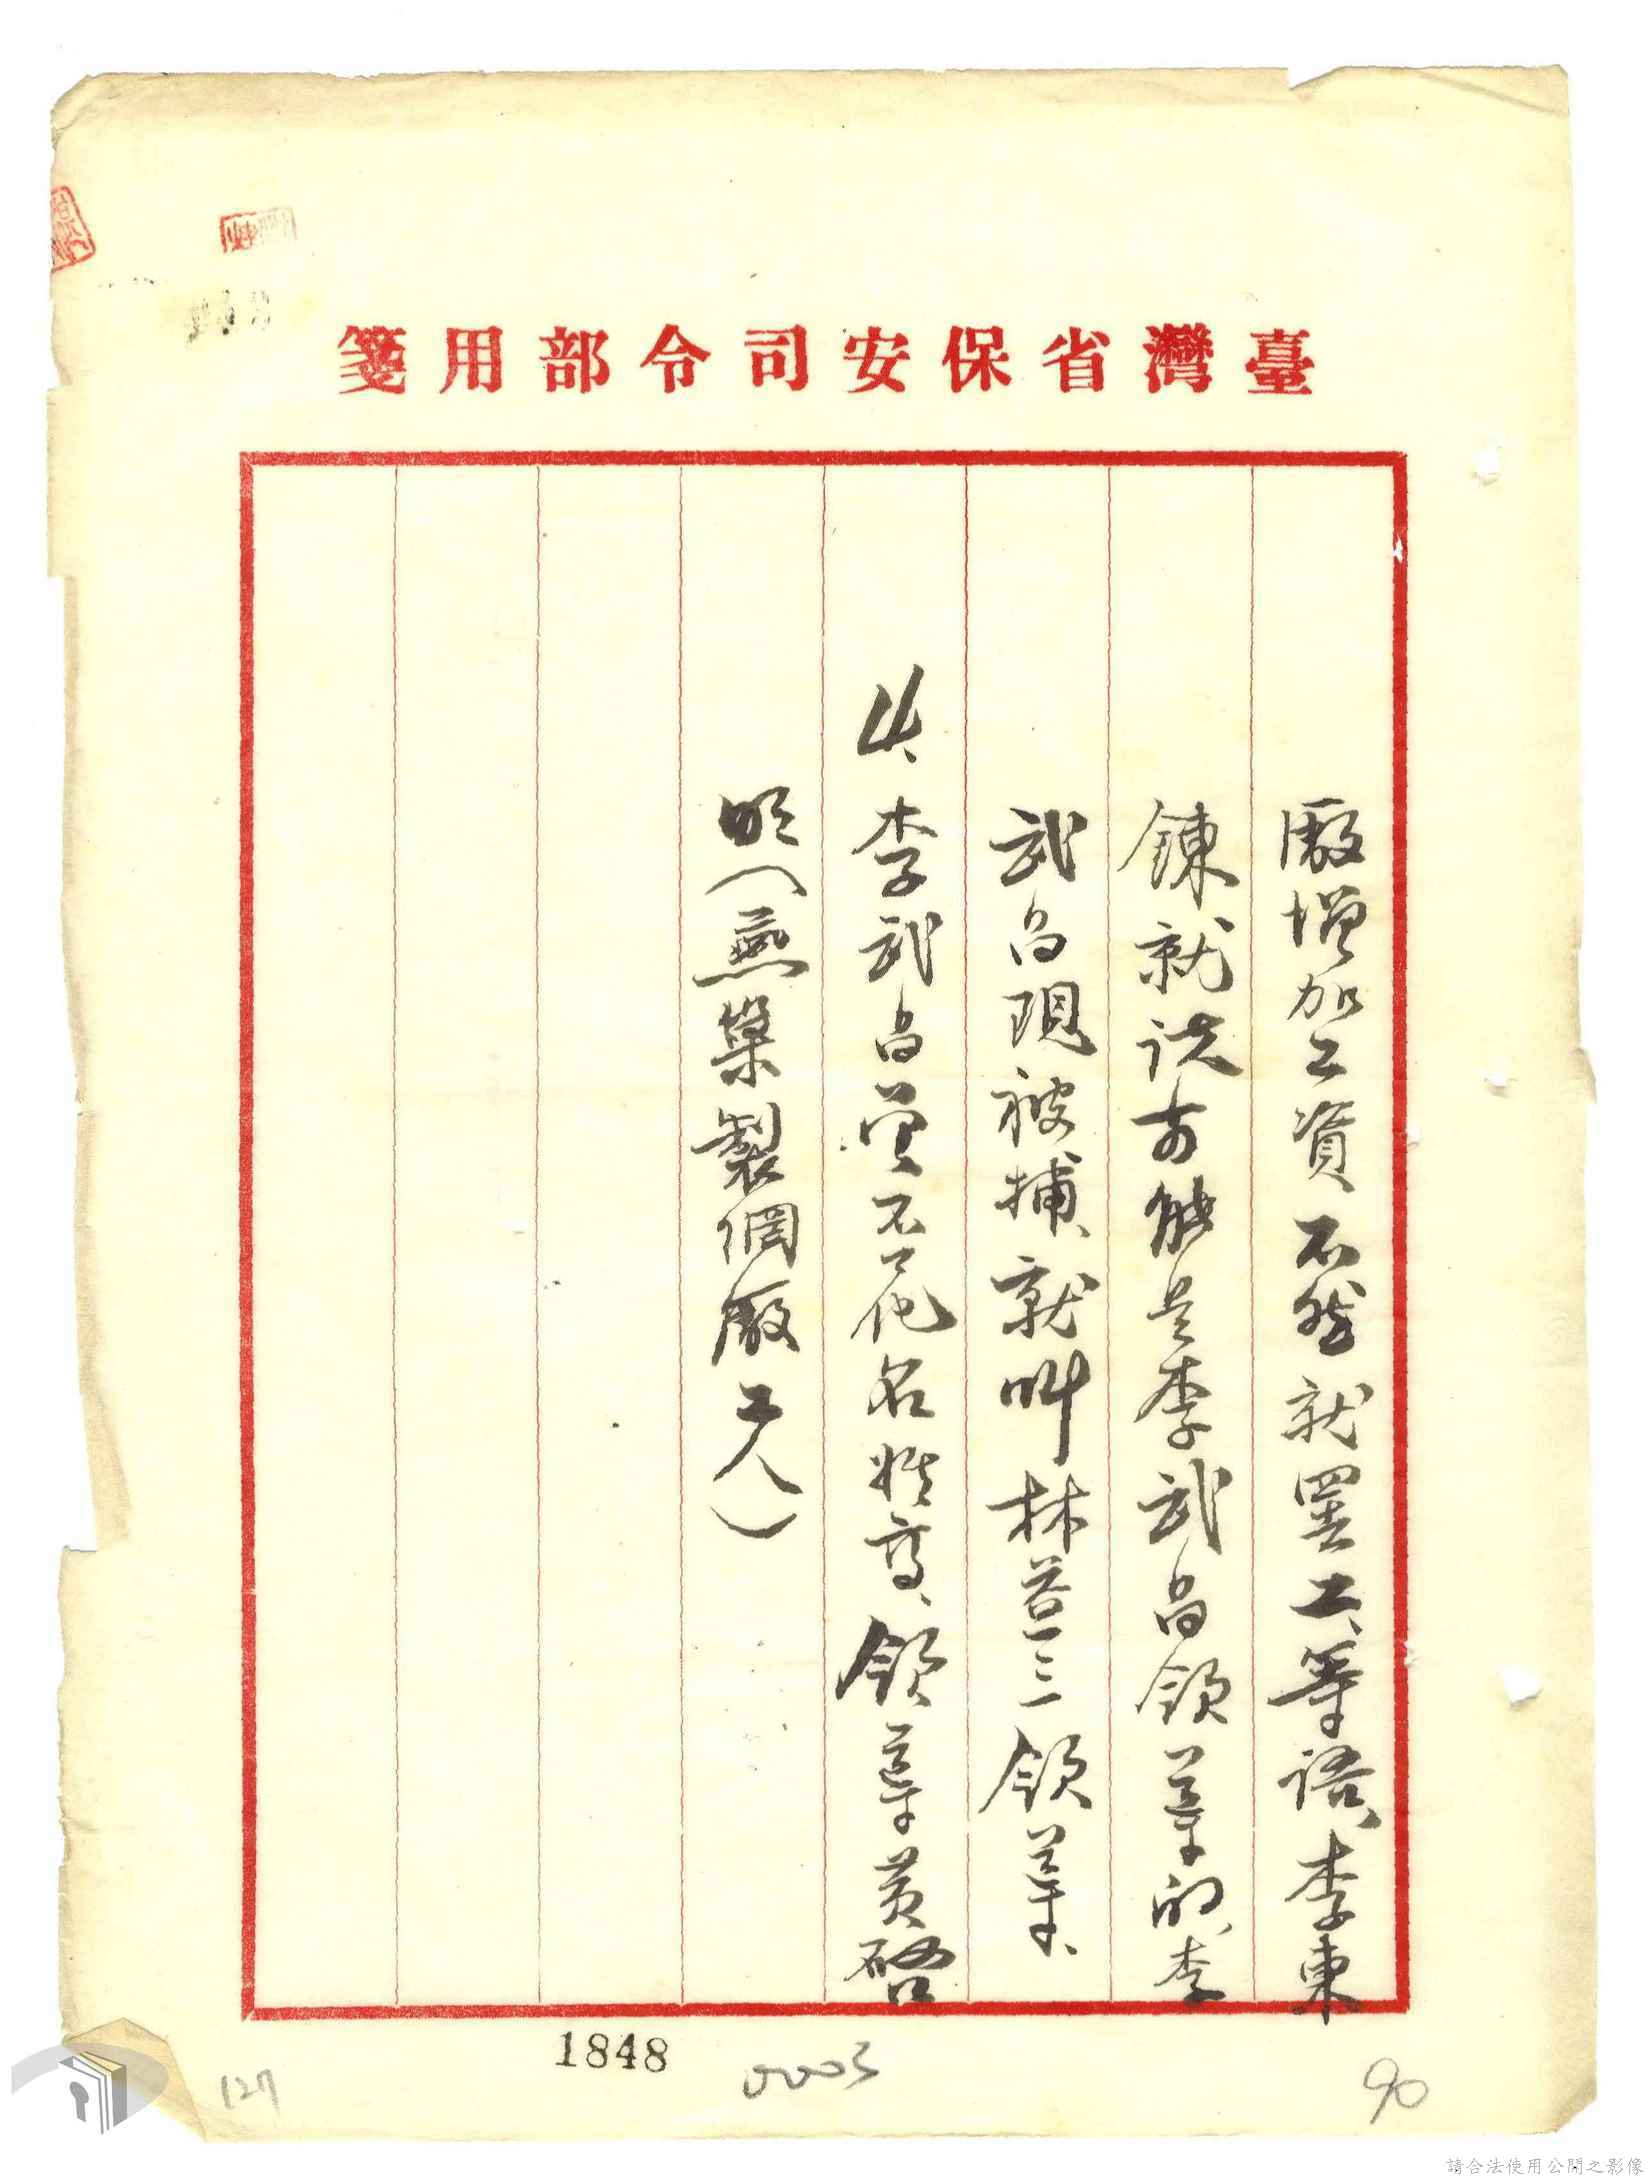 臺灣省保安司令部用箋
廠增加工資不然就罷工、等語、李東
鍊就説可能是李武昌領導的、李
武昌現被捕、就叫林益三領導、
4、李武昌當不花名姓高、領導黃啓
明(燕巢製網廠工人)
1848
0003
90
127
請合法使用公開之影像